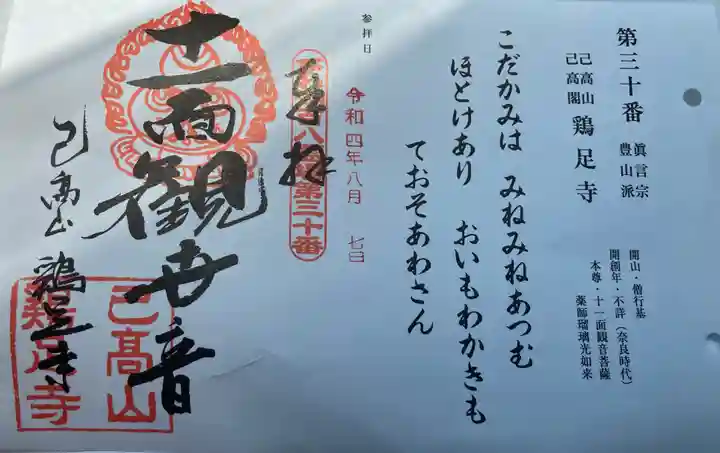 第三十番
眞言宗
豊山派
己高山
己高閣
鶏足寺
開山・僧行基
開創年・不詳（奈良時代）
本尊・十一面観音菩薩
薬師瑠璃光如来
こだかみは　みねみねあつむ
ほとけあり　おいもわかきも
ておそあわさん
参拝日
令和四年八月　七日
奉拝
第三十番
十一面観世音
己高山　鶏足寺
己高山
鶏足寺